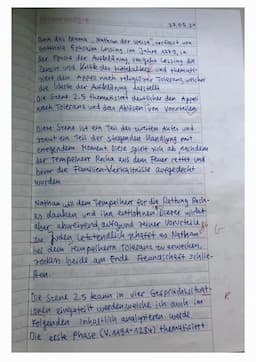 27.05.24
Das Drama "Nathan der Weise", verfasst von
Gotthold Ephraim Lessing im Jahre 1779, in
der Epoche der Aufklärung,
und
siert den Appell nach religiöser Toleranz, welcher
die der Aufklärung darstellt.
Die Szene 2.5 thematisiert den Appell
nach Toleranz und das Ablösen von Vorurteilen.
Diese Szene ist ein Teil des zweiten Aktes und
somit ein Teil der steigenden Handlung mit
erregendem Moment. Diese spielt sich ab nachdem
der Tempelherr Recha aus dem Feuer rettet und
bevor die Familienverhältnisse aufgedeckt
werden.
Nathan will dem Tempelherr für die Rettung Rech-
as danken und ihn Dieser wirkt
aber abweisend aufgrund seiner Vorurteile
zu Juden. Letztendlich schafft es Nathan
bei dem Tempelherr Toleranz zu erwecken,
sodass beide am Ende Freundschaft schlie-
ßen.
G
Die Szene 2.5 kann in vier Gesprächsabschnit-
eingeteilt werden, welche ich auch im
Folgenden inhaltlich analysieren werde.
R
Die erste Phase (V.1191-1234) thematisiert